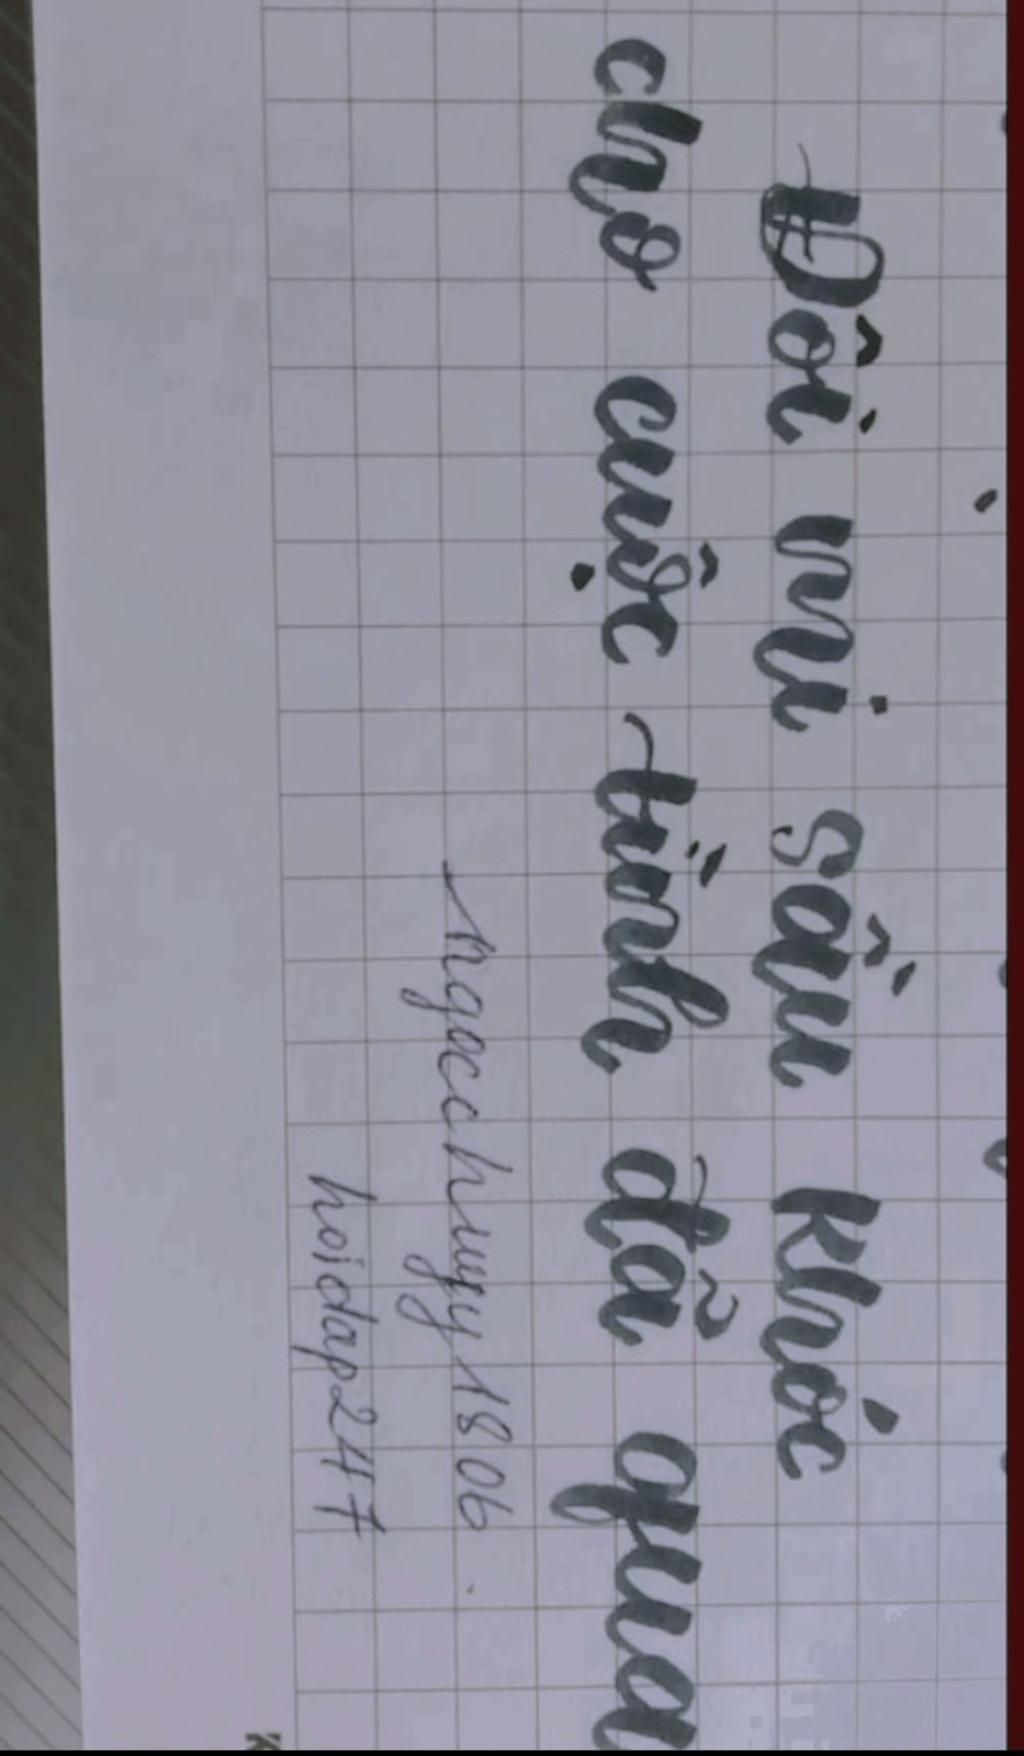 Đôi mi sầu khóc
cho cuộc tình đã qua
ngocchuyy1806.
hoidap247
K